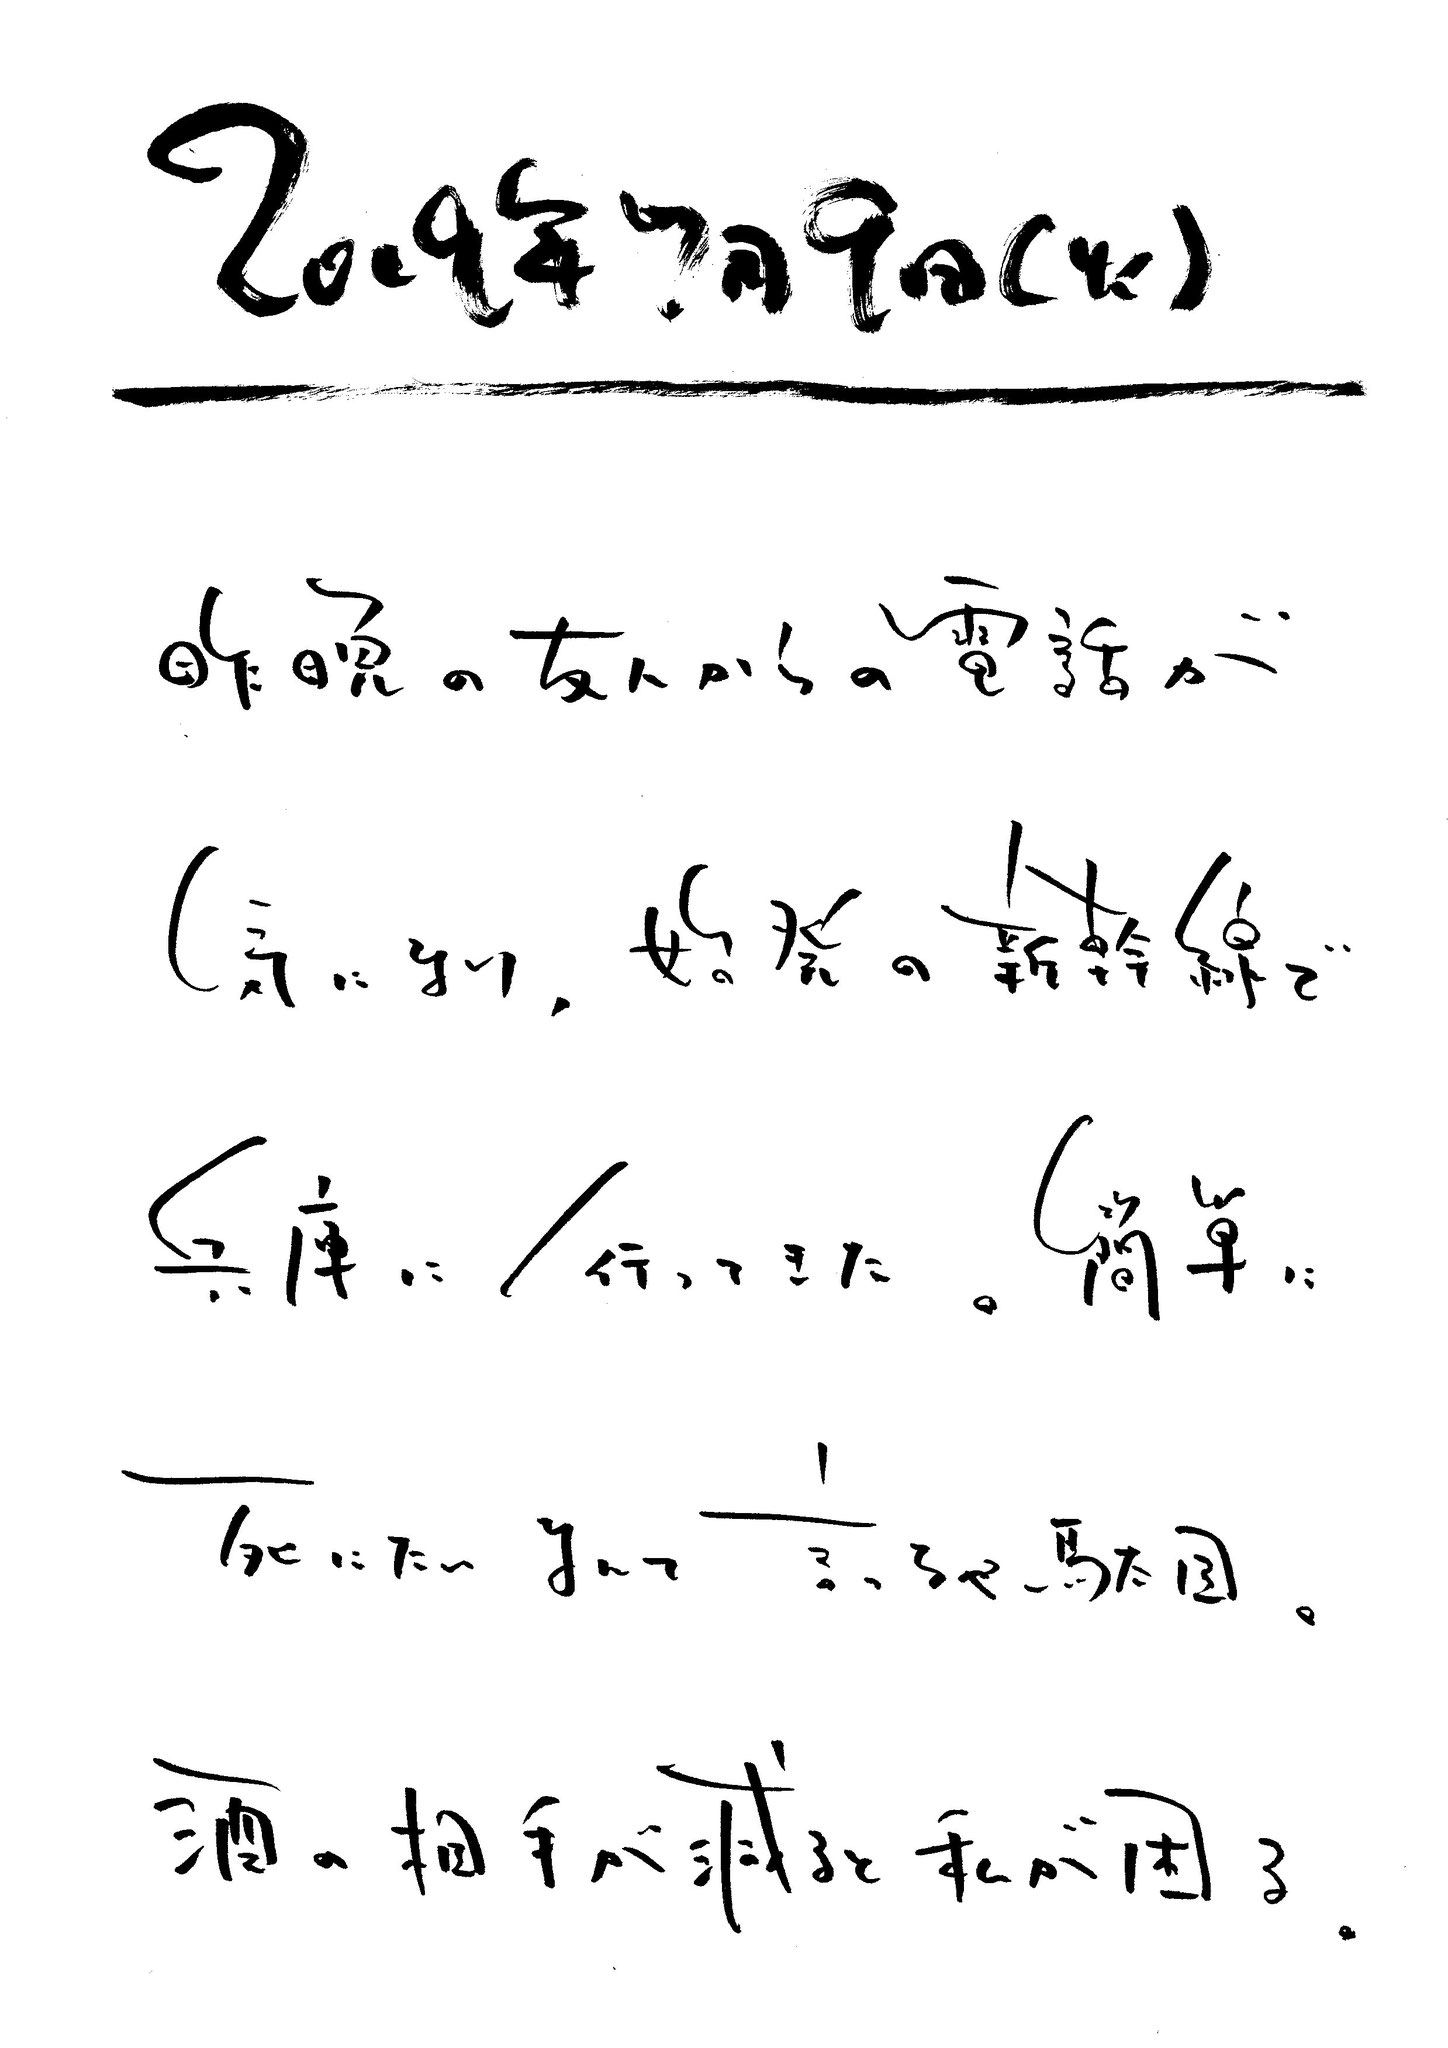 2019年7月9日(火)
昨晩の友人からの電話が
気になり、始発の新幹線で
兵庫に行ってきた。簡単に
死にたいなんて言っちゃ駄目。
酒の相手が減ると私が困る。